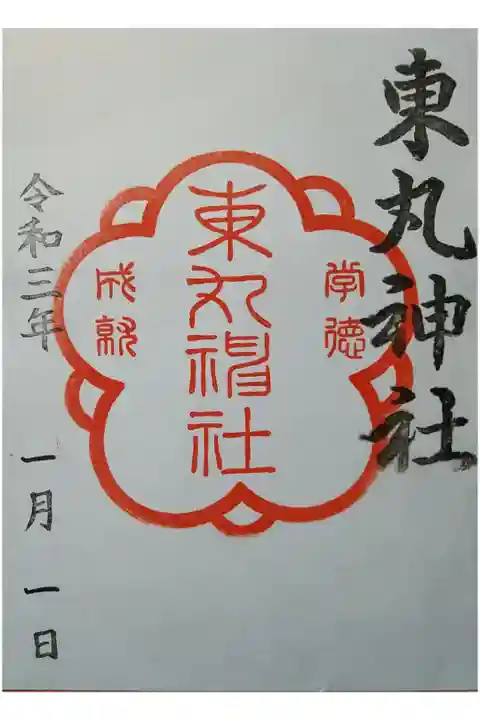 東丸神社
学徳
東丸神社
成就
令和三年 一月一日